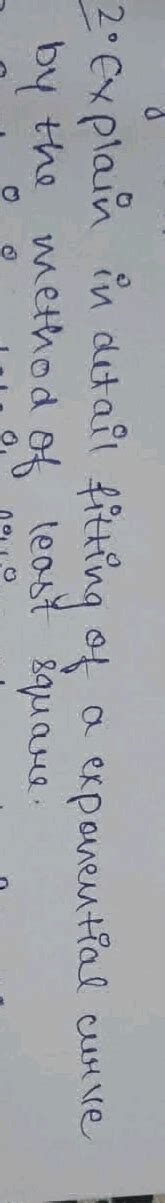 2. Explain in detail fitting of a exponential curve
by the method of least square.